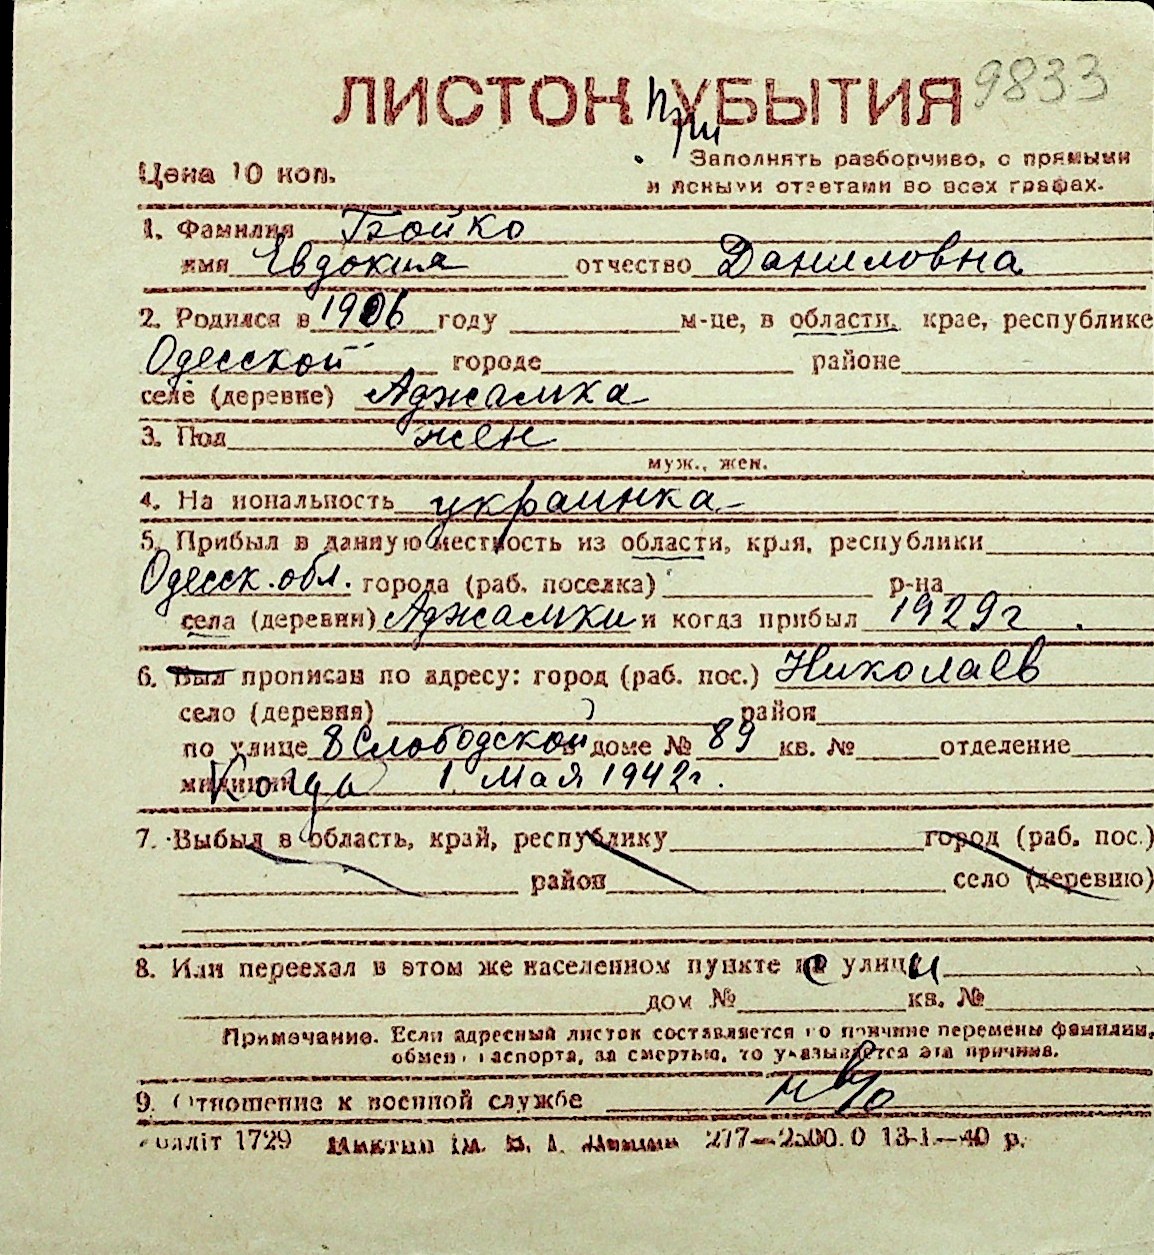 ЛИСТОК при УБЫТИЯ 9833
Цена 10 коп.
Заполнять разборчиво, с прямыми
и ясными ответами во всех графах.
1. Фамилия Бойко
имя Евдокия отчество Даниловна
2. Родился в 1906 году м-це, в области, крае, республике
Одесской городе районе
селе (деревне) Аджамка
3. Пол жен
муж., жен.
4. Национальность украинка
5. Прибыл в данную местность из области, края, республики
Одесск. обл. города (раб. поселка) р-на
села (деревни) Аджамки и когда прибыл 1929 г.
6. Был прописан по адресу: город (раб. пос.) Николаев
село (деревня) район
по улице 8 Слободской в доме № 89 кв. № отделение
милиции Когда 1 Мая 1942 г.
7. Выбыл в область, край, республику город (раб. пос.)
район село (деревню)
8. Или переехал в этом же населенном пункте с улицы
дом № кв. №
Примечание. Если адресный листок составляется по причине перемены фамилии,
обмена паспорта, за смертью, то указывается эта причина.
9. Отношение к военной службе н/в/о
1729 277—2500.0 13-1.—40 р.